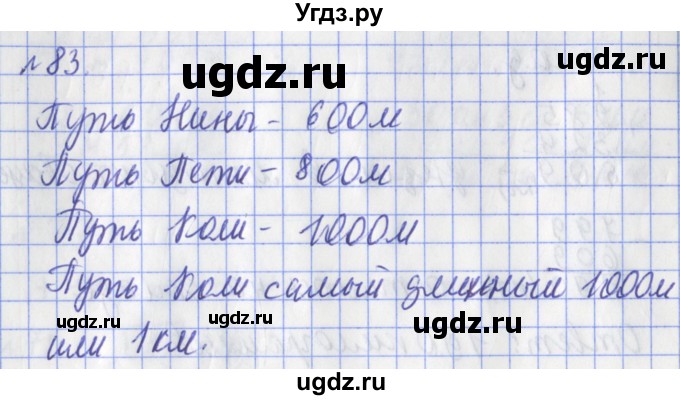 Угдз.ру
№83.
ugdz.ru
Путь Нины - 600м
Путь Пети - 800м
ugdz.ru
Путь Коли - 1000м
Путь Коли самый длинный 1000м
ugdz.ru
ugdz.ru
или 1км.
ugdz.ru